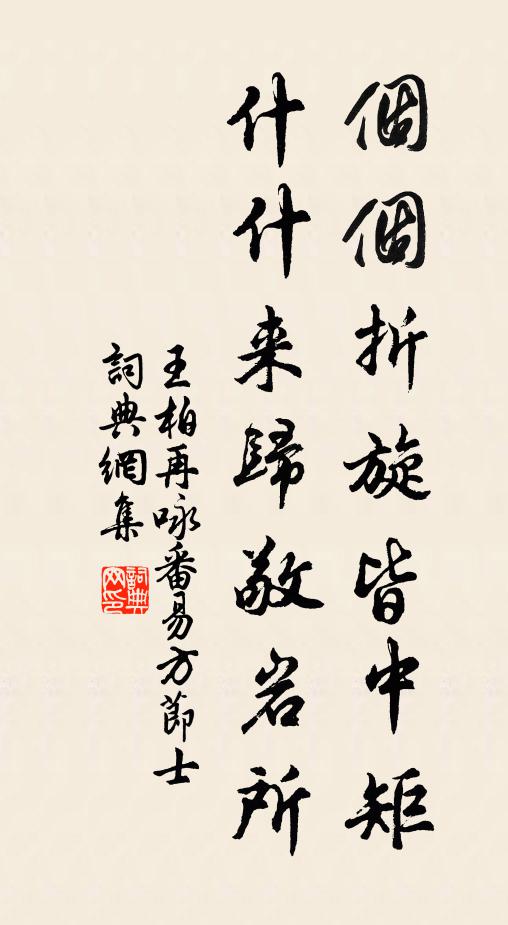 個個折旋皆中矩
什什来歸敬岩所
王柏再咏番易方節士
詞典網集
詞典網印